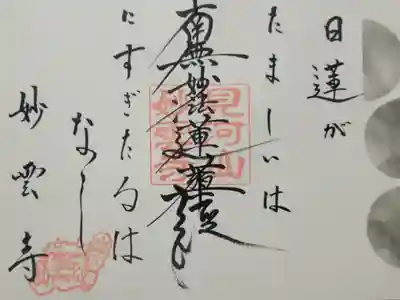 日蓮が
たましいは
南無妙法蓮華経
にすぎたるは
なし
妙雲寺